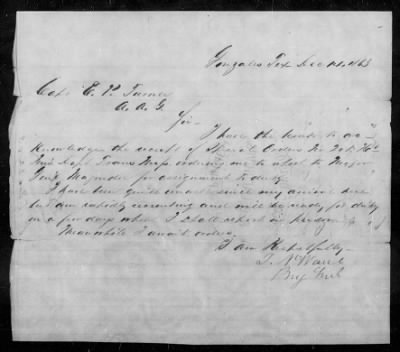 Gonzales Tex Dec 1863
Capt E. P. Turner
A. A. G.
Sir—
I have the honor to ac-
knowledge the receipt of Special Orders No
Trans Miss, ordering me to report to Major
Genl Magruder for assignment to duty.
I have been quite since my arrival here
but am rapidly recruiting and will be ready for duty
in a few days when I shall report in person
Meanwhile I await orders.
I am Respectfully
Brig Genl